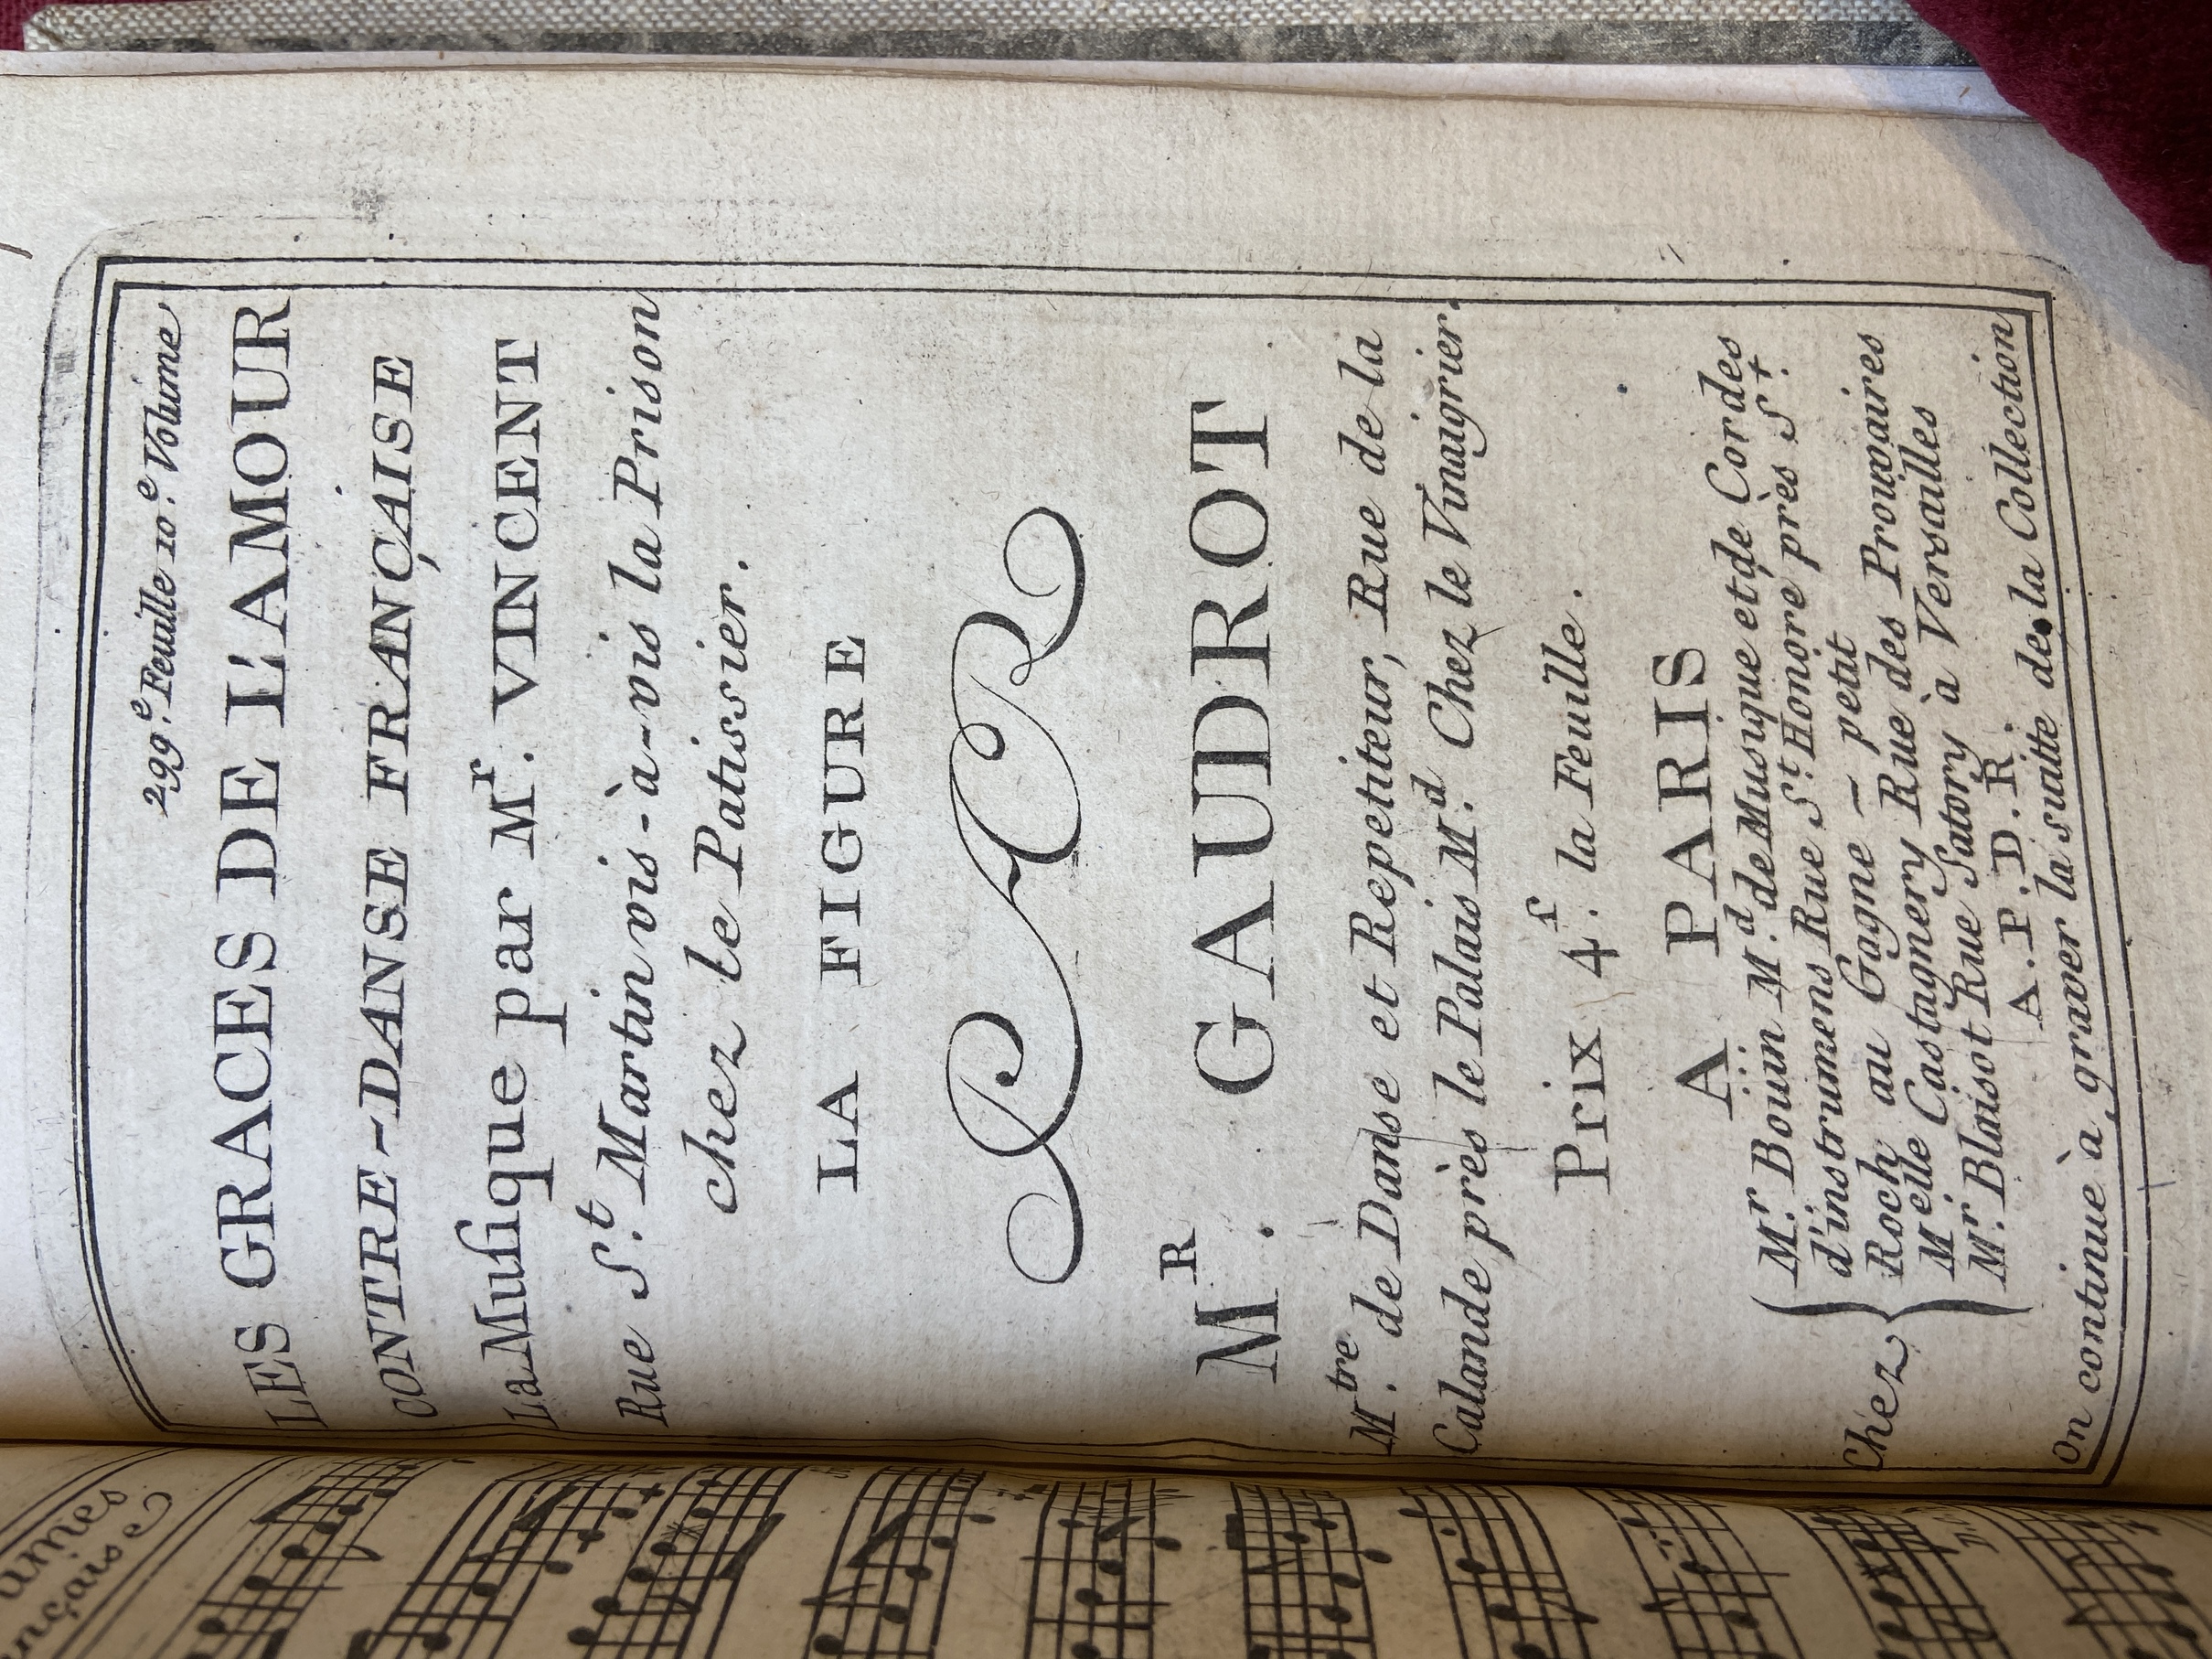 299.e Feuille 10.e Volume
LES GRACES DE L'AMOUR
CONTRE-DANSE FRANÇAISE
La Musique par Mr. VINCENT
Rue St. Martin vis-à-vis la Prison
chez le Patissier.
LA FIGURE
PAR
MR. GAUDROT
Mtre. de Danse et Repetiteur, Rue de la
Calande près le Palais Md. Chez le Vinaigrier.
Prix 4.f la Feuille.
A PARIS
Chez
Mr. Bouin Md. de Musique et de Cordes
d'instrumens Rue St. Honore près St.
Roch au Gagne - petit
Melle Castagnery Rue des Prouvaires
Mr. Blaisot Rue Satory à Versailles
A. P. D. R.
On continue à graver la suitte de la Collection